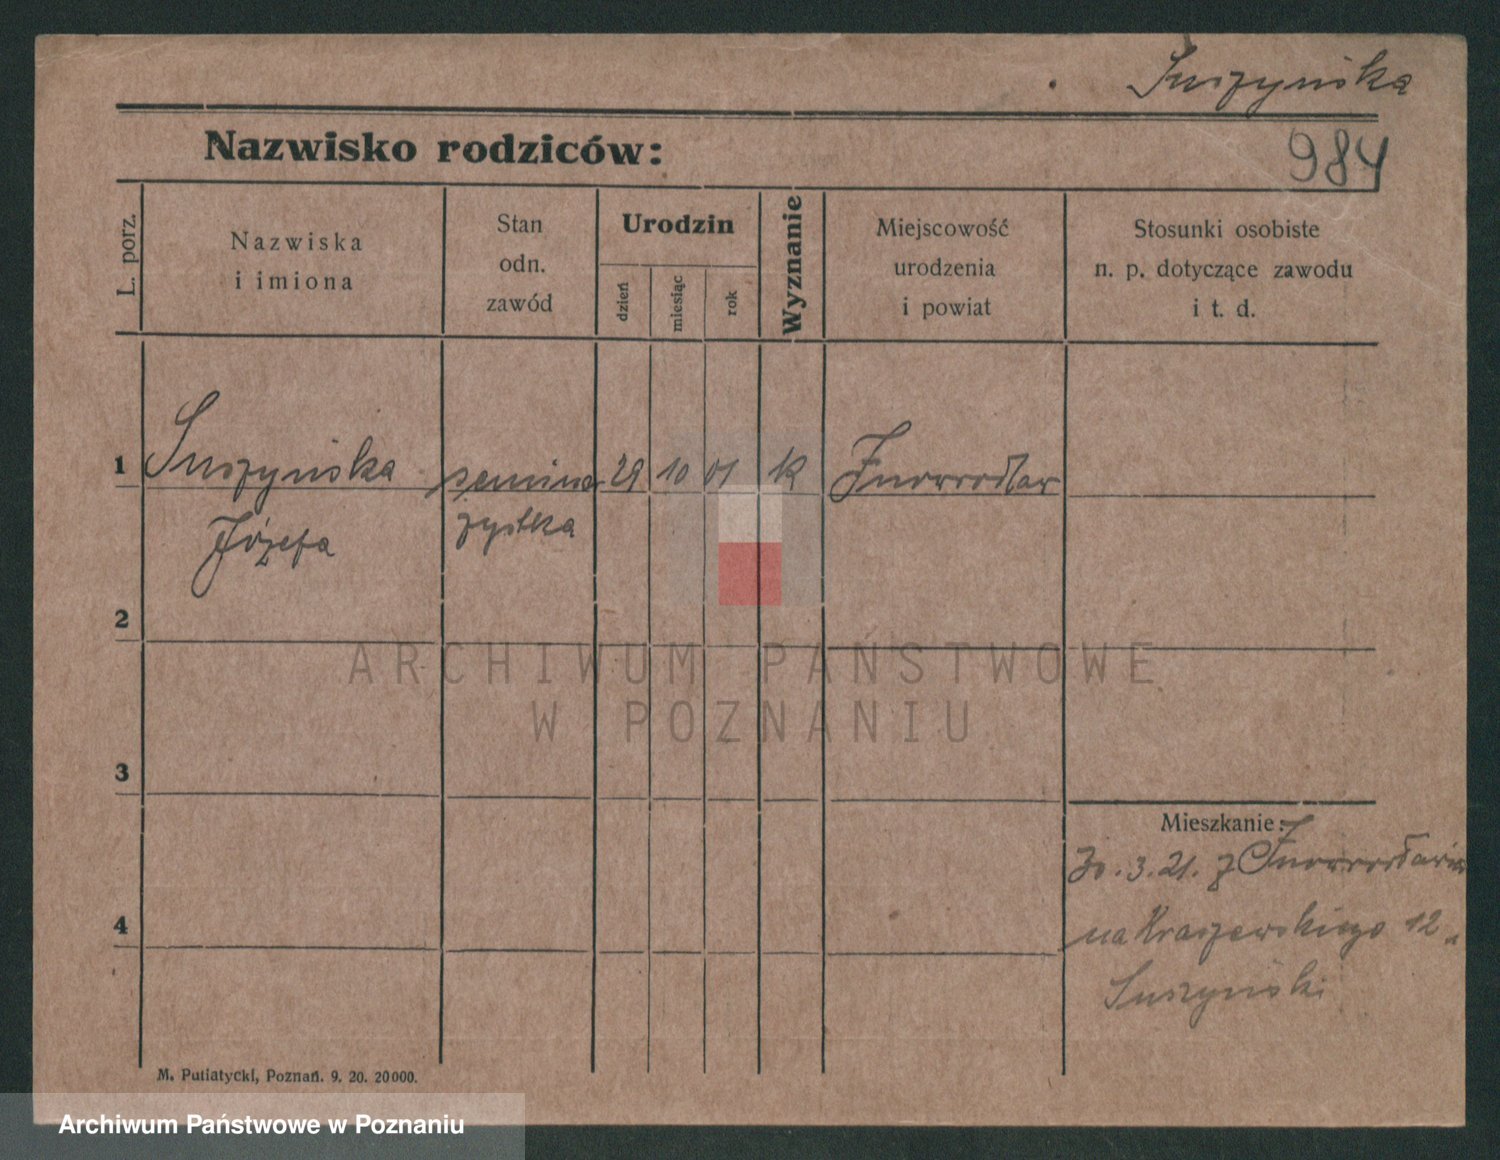 Suszyńska
Nazwisko rodziców:
984
L. porz.
Nazwiska
i imiona
Stan
odn.
zawód
Urodzin
dzień
miesiąc
rok
Wyznanie
Miejscowość
urodzenia
i powiat
Stosunki osobiste
n. p. dotyczące zawodu
i t. d.
1
Suszyńska
semina
29
10
01
k
Inowrocław
Józefa
rzystka
2
ARCHIWUM PAŃSTWOWE
W POZNANIU
3
Mieszkanie:
30.3.21. z Inowrocławia
4
na Kraszewskiego 12
Suszyński
M. Putiatycki, Poznań. 9. 20. 20000.
Archiwum Państwowe w Poznaniu